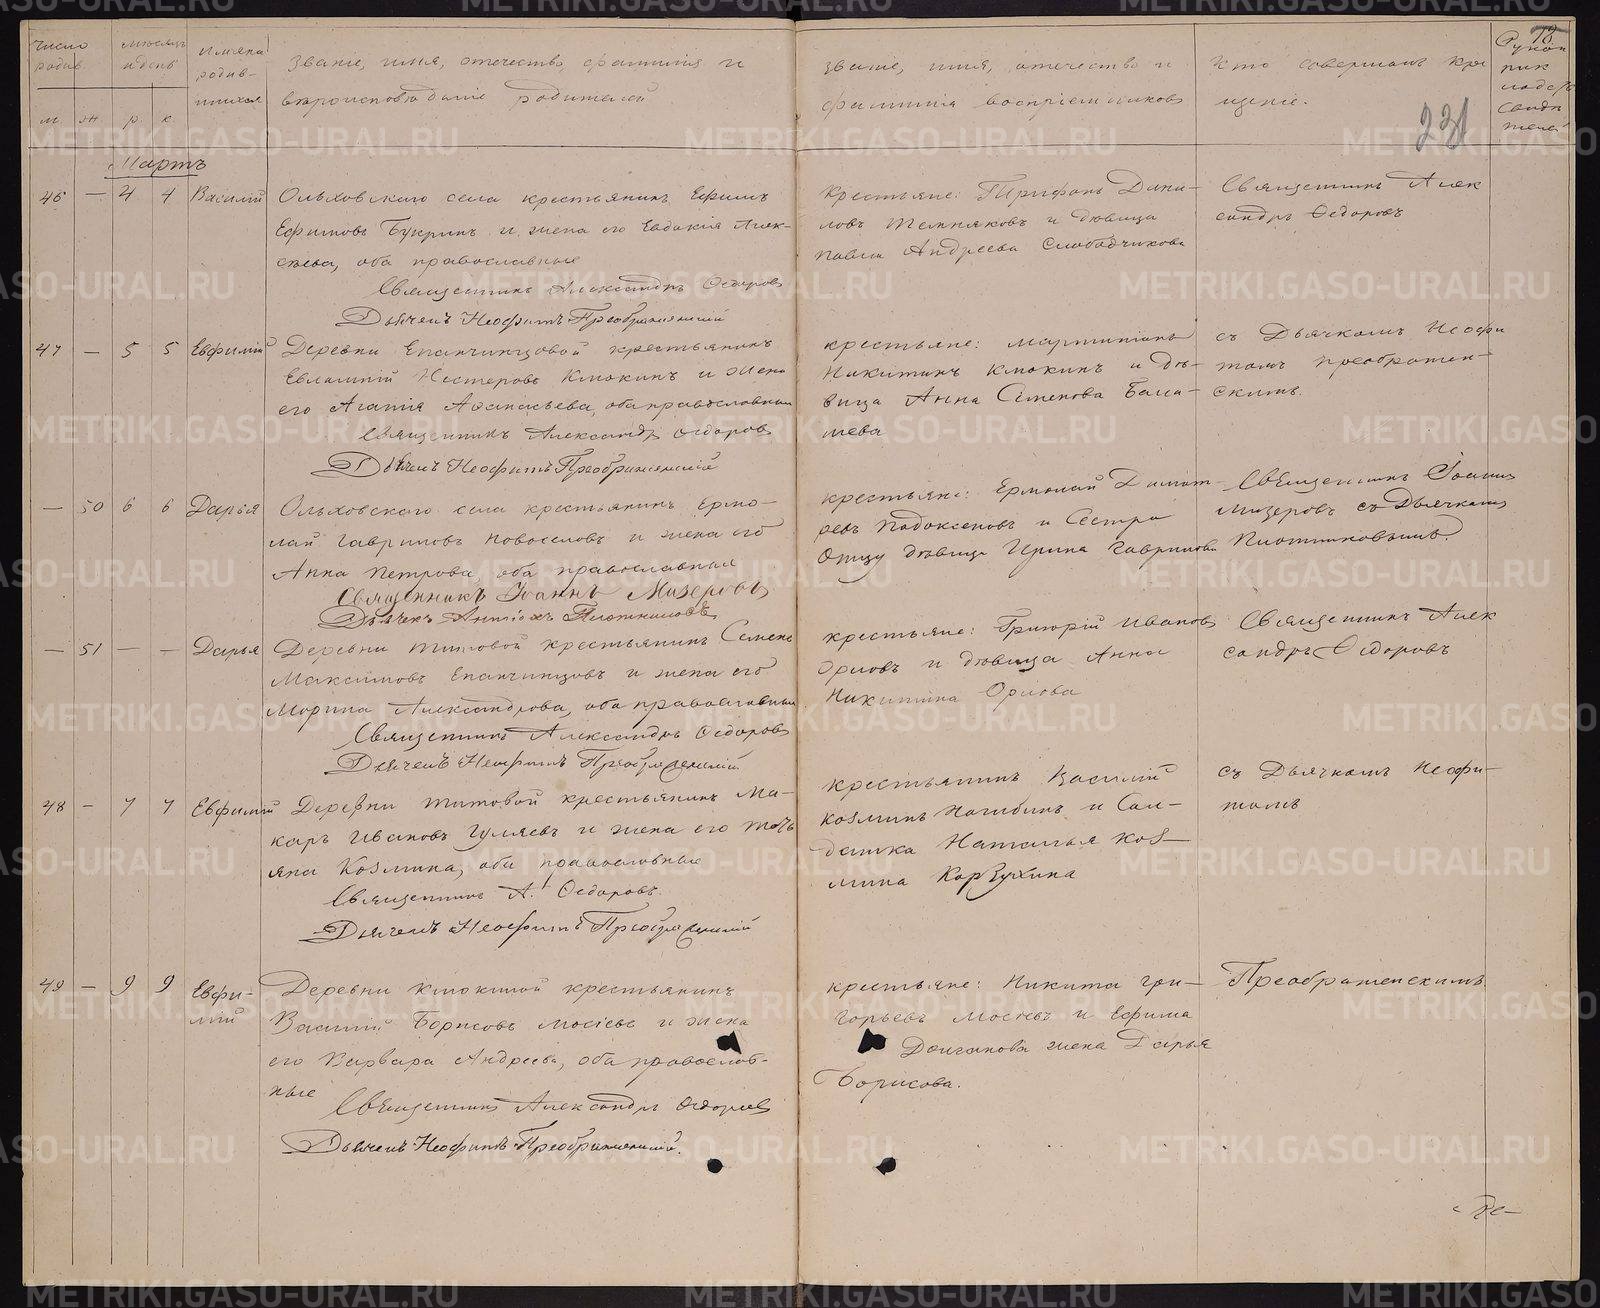 Число родив.
мѣсяцъ и день
Имена родив-шихся
Званіе, имя, отечество, фамилія и
вѣроисповѣданіе родителей
Званіе, имя, отечество и
фамилія воспріемниковъ
Кто совершалъ кре
щеніе.
м. ж. р. к.
18
231
Мартъ
46 — 4 4 Василій
Ольховского села крестьянинъ Ефимъ
Ефимовъ Букринъ и жена его Евдокія Алек-
сѣева, оба православные
Священникъ Александръ Ѳедоровъ
Дьячекъ Неофитъ Преображенскій
Крестьяне: Трифонъ Дани-
ловъ Темняковъ и дѣвица
Павла Андреева Слободчикова
Священникъ Алек
сандръ Ѳедоровъ
47 — 5 5 Евфимій
Деревни Епанчинцовой крестьянинъ
Евлампій Нестеровъ Клюкинъ и жена
его Агапія Аѳанасьева, оба православные
Священникъ Александръ Ѳедоровъ
Дьячекъ Неофитъ Преображенскій
крестьяне:
Никитинъ Клюкинъ и дѣ-
вица Анна Семенова Бала-
шева
съ Дьячкомъ Неофи
томъ Преображен-
скимъ.
— 50 6 6 Дарья
Ольховского села крестьянинъ Ермо-
лай Гавриловъ Новоселовъ и жена его
Анна Петрова, оба православныя
Священникъ Іоаннъ Мизеровъ
Дьячекъ Антіохъ Плотниковъ
крестьяне: Ермолай Димит-
ревъ и Сестра
Отцу дѣвица Ирина Гаврилова
Священникъ Іоаннъ
Мизеровъ съ Дьячкомъ
Плотниковымъ.
— 51 — — Дарья
Деревни Титовой крестьянинъ Семенъ
Максимовъ Епанчинцовъ и жена его
Морина Александрова, оба православныя
Священникъ Александръ Ѳедоровъ
Дьячекъ Неофитъ Преображенскій
крестьяне: Григорій Ивановъ
Орловъ и дѣвица Анна
Никитина Орлова
Священникъ Алек
сандръ Ѳедоровъ
48 — 7 7 Евфимій
Деревни Титовой крестьянинъ Ма-
каръ Ивановъ Гуляевъ и жена его Тать
яна Козмина, оба православные
Священникъ А. Ѳедоровъ.
Дьячекъ Неофитъ Преображенскій
крестьянинъ Василій
Козминъ Нагибинъ и Сол-
датка Наталья Коз-
мина Карзухина
съ Дьячкомъ Неофи-
томъ
49 — 9 9 Евфи-
мій
Деревни Клюкиной крестьянинъ
Василій Борисовъ Мосіевъ и жена
его Варвара Андреева, оба православ-
ные
Священникъ Александръ Ѳедоровъ
Дьячекъ Неофитъ Преображенскій.
крестьяне: Никита Гри-
горьевъ Мосіевъ и Ефима
Долганова жена Дарья
Борисова.
Преображенскимъ
METRIKI.GASO-URAL.RU